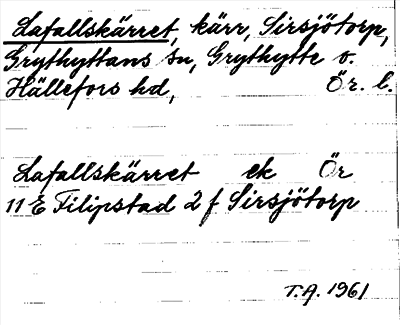 Lafallskärret, kärr, Sirsjötorp,
Grythyttans sn, Grythytte o.
Hällefors hd, Ör. l.
Lafallskärret ek Ör
11 E Filipstad 2 f Sirsjötorp
T.A. 1961